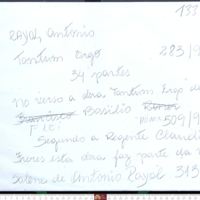 133
RAYOL, Antonio
Tantum Ergo 283/9
34 partes
No verso a obra Tantum Ergo de
Francisco Basilio
FICI 509/9
Segundo a Regente
Freres esta obra faz parte da
de Antonio Rayol 313